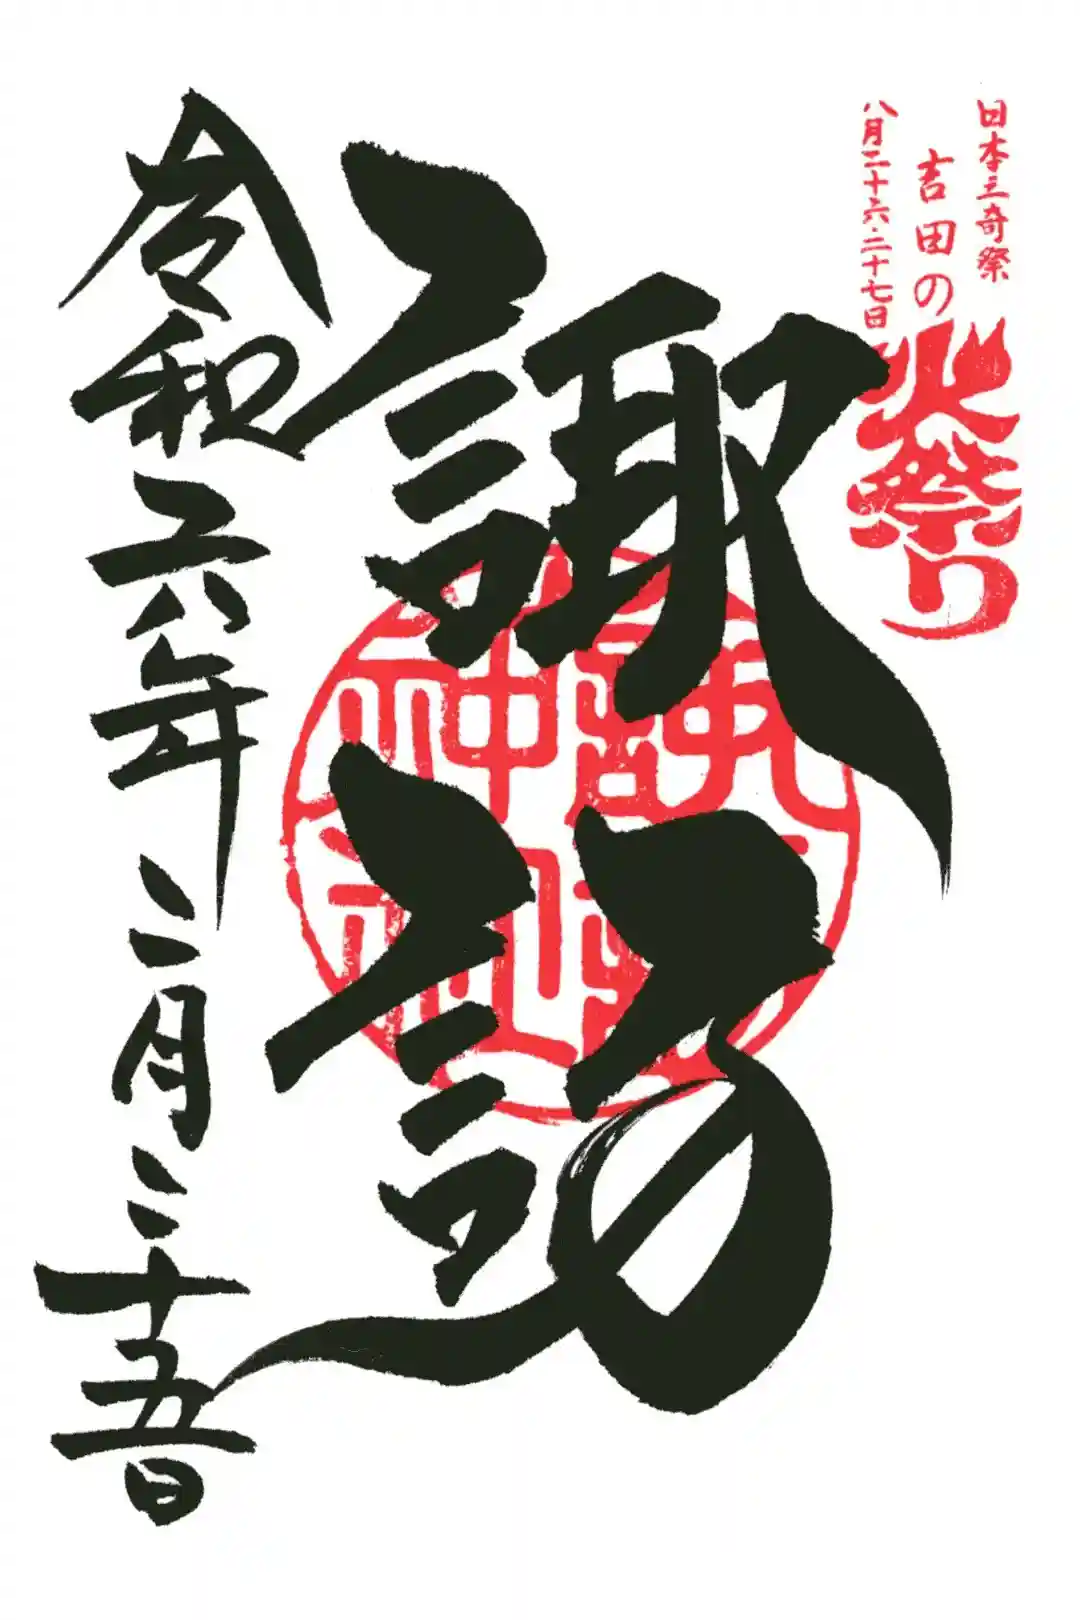 日本三奇祭
吉田の火祭り
八月二十六・二十七日
諏訪
諏訪
神社
令和六年二月二十五日